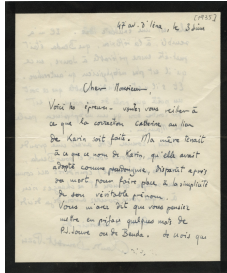 [1935]
47 av. d'Iéna, le 3
Cher Monsieur,
Voici les épreuves. voulez vous veiller à
ce que la correction Catherine au lieu
de Karin soit faite. Ma mère tenait
à ce que ce nom de Karin, qu'elle avait
adopté comme pseudonyme, disparût après
sa mort pour faire place à la simplicité
de son véritable prénom.
Vous m'avez dit que vous pensiez
mettre en préface quelques mots de
P.J. Jouve ou de Benda. Je crois que